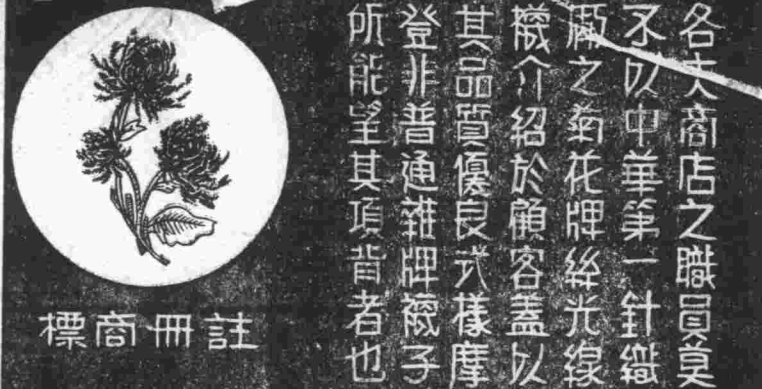 各大商店之職員莫
不以中華第一針織
廠之菊花牌絲光線
襪介紹於顧客蓋以
其品質優良式樣摩
登非普通雜牌襪子
所能望其項背者也
註冊商標